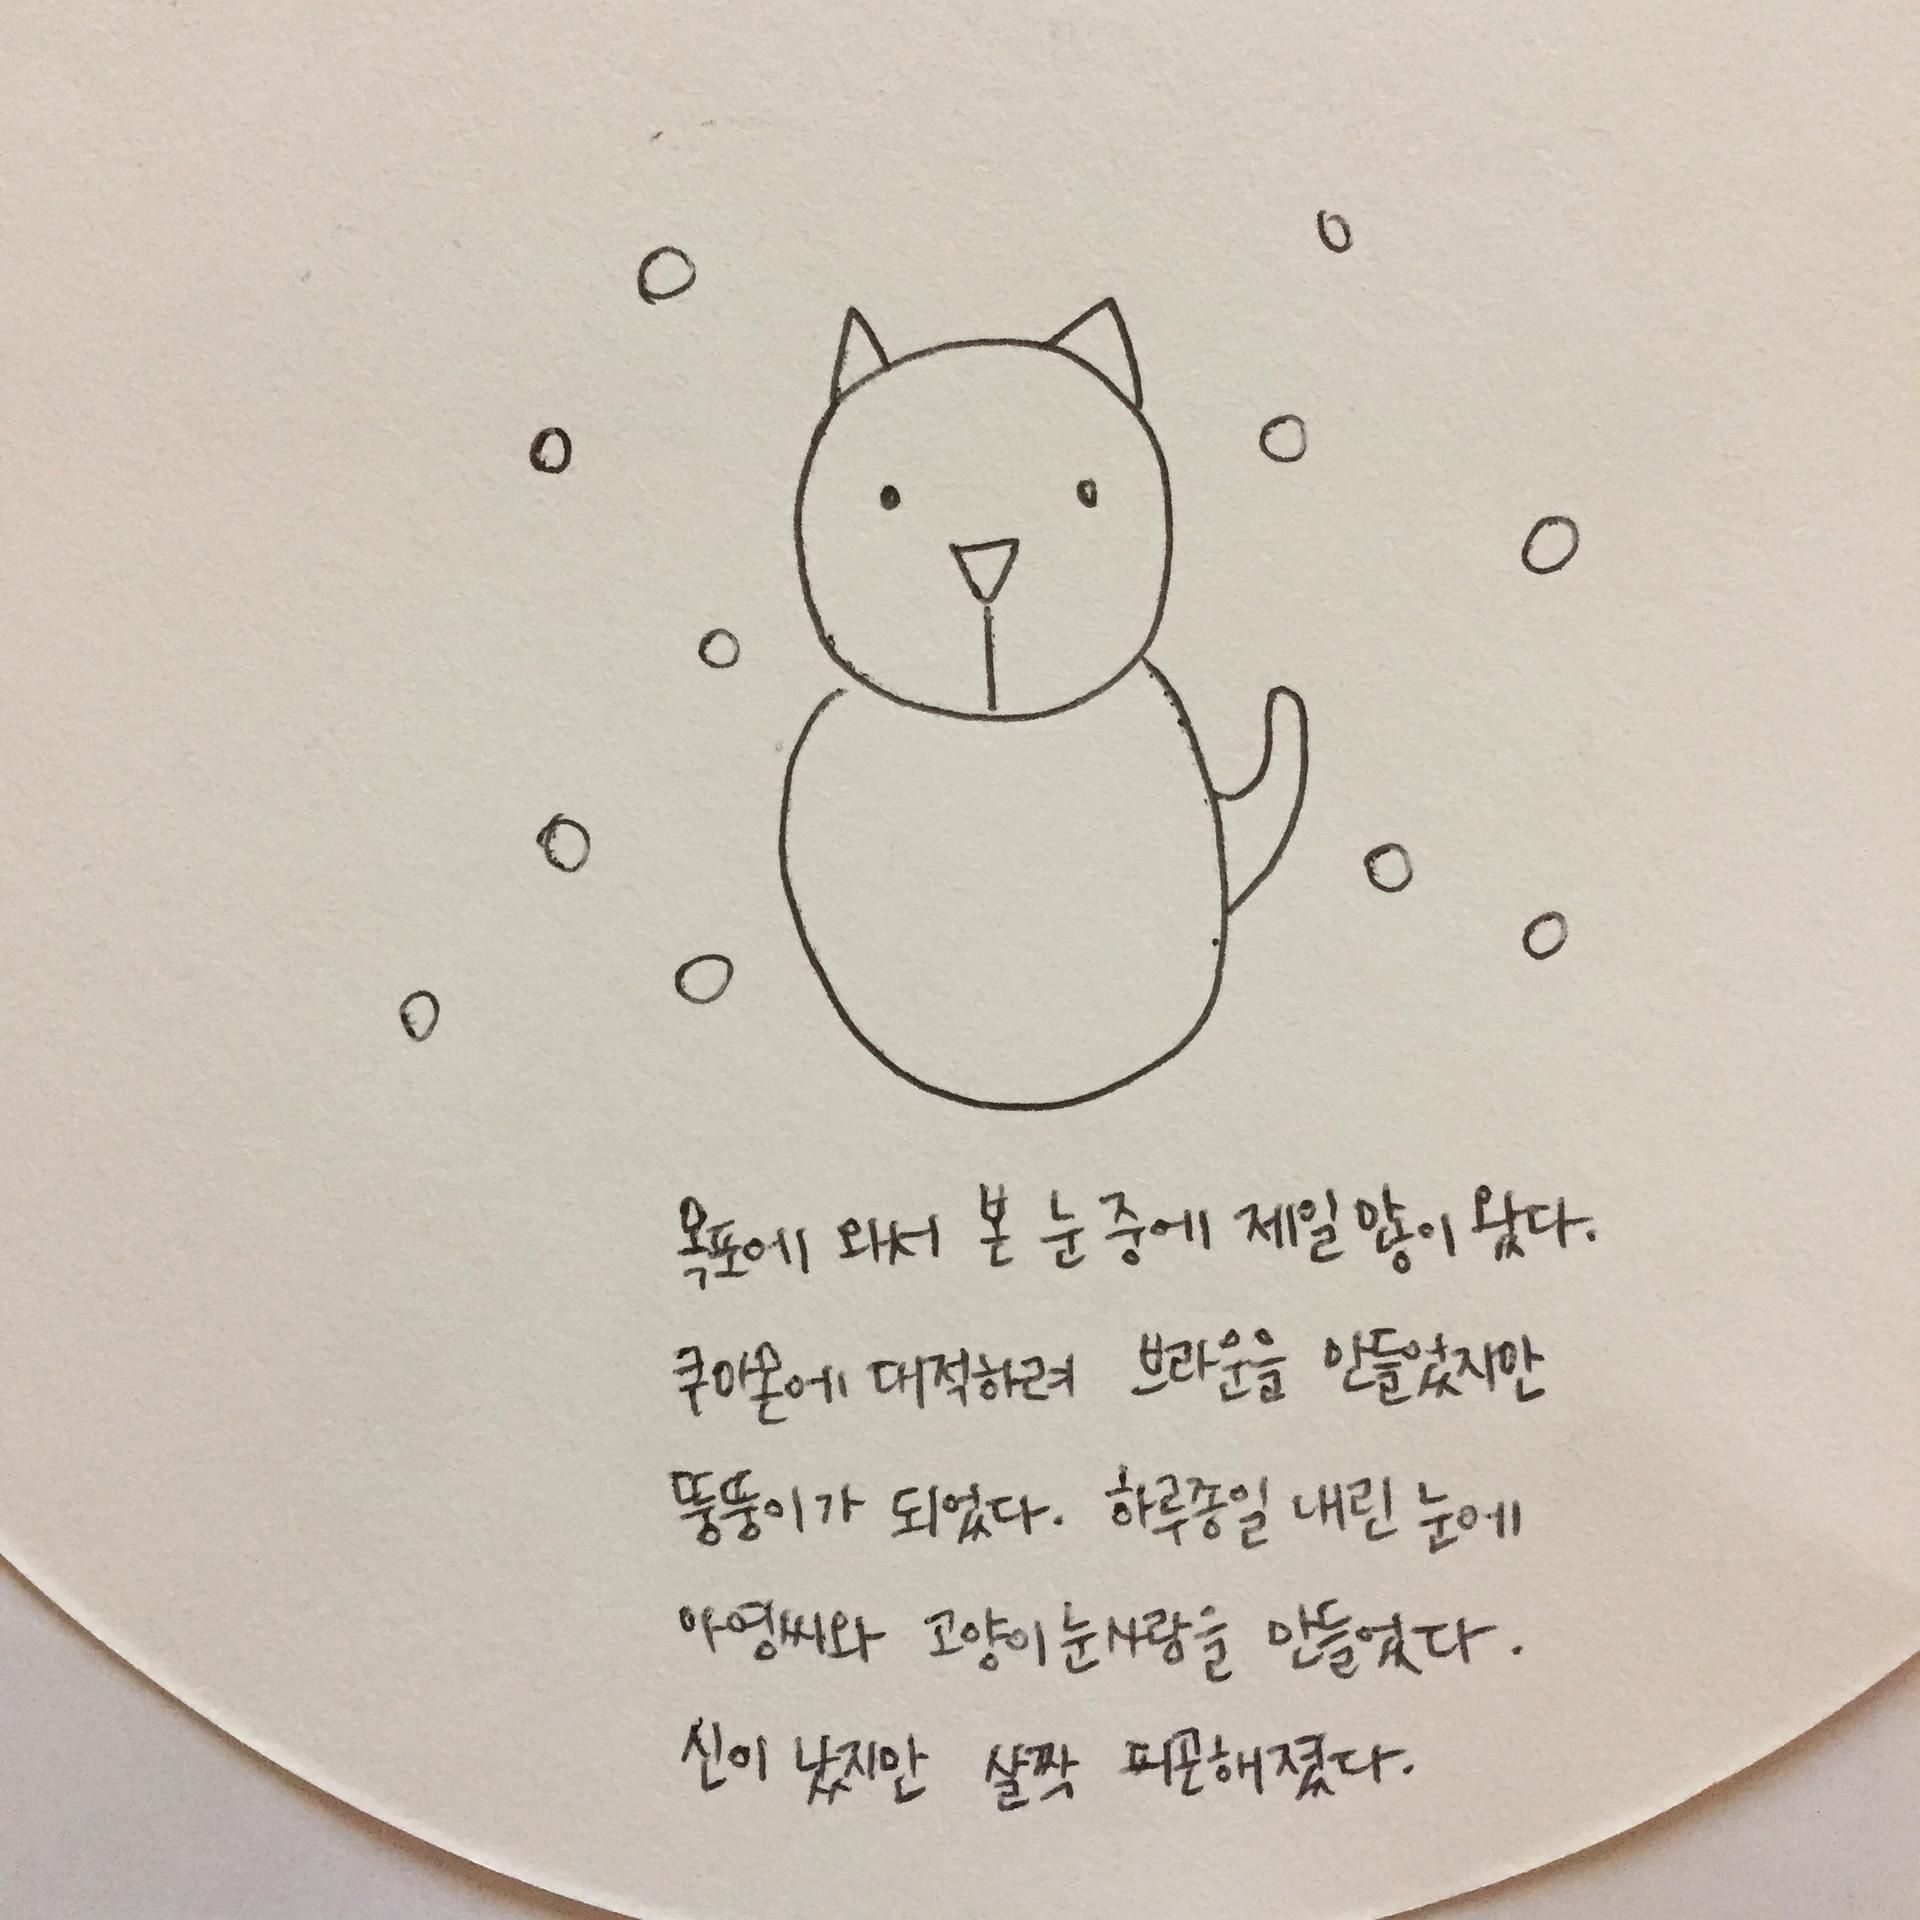 목포에 와서 본 눈 중에 제일 많이 왔다.
쿠마몬에 대적하려 브라운을 만들었지만
뚱뚱이가 되었다. 하루종일 내린 눈에
아영씨와 고양이눈사람을 만들었다.
신이 났지만 살짝 피곤해졌다.